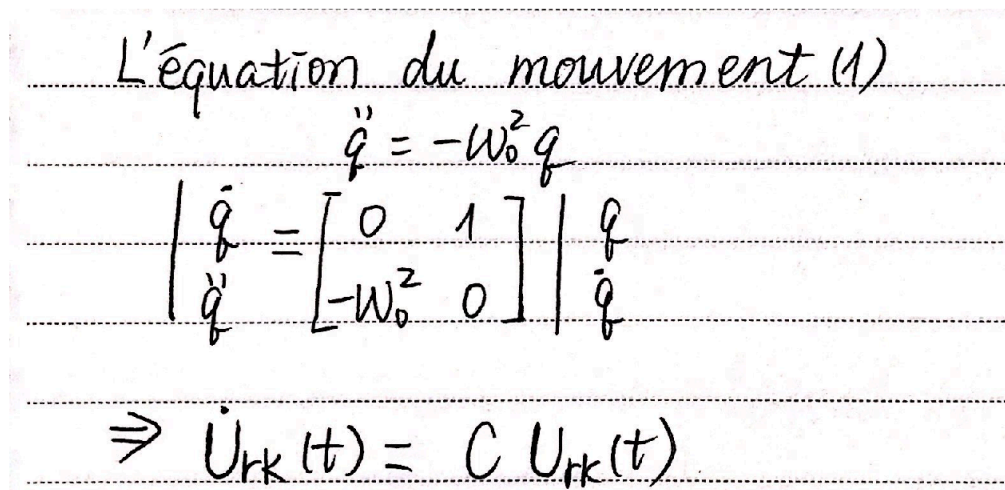 L'équation du mouvement (1)
q̈ = -ω₀² q
| q̇ = [ 0 1 ] | q
| q̈ [ -ω₀² 0 ] | q̇
⇒ U̇rk (t) = C Urk(t)